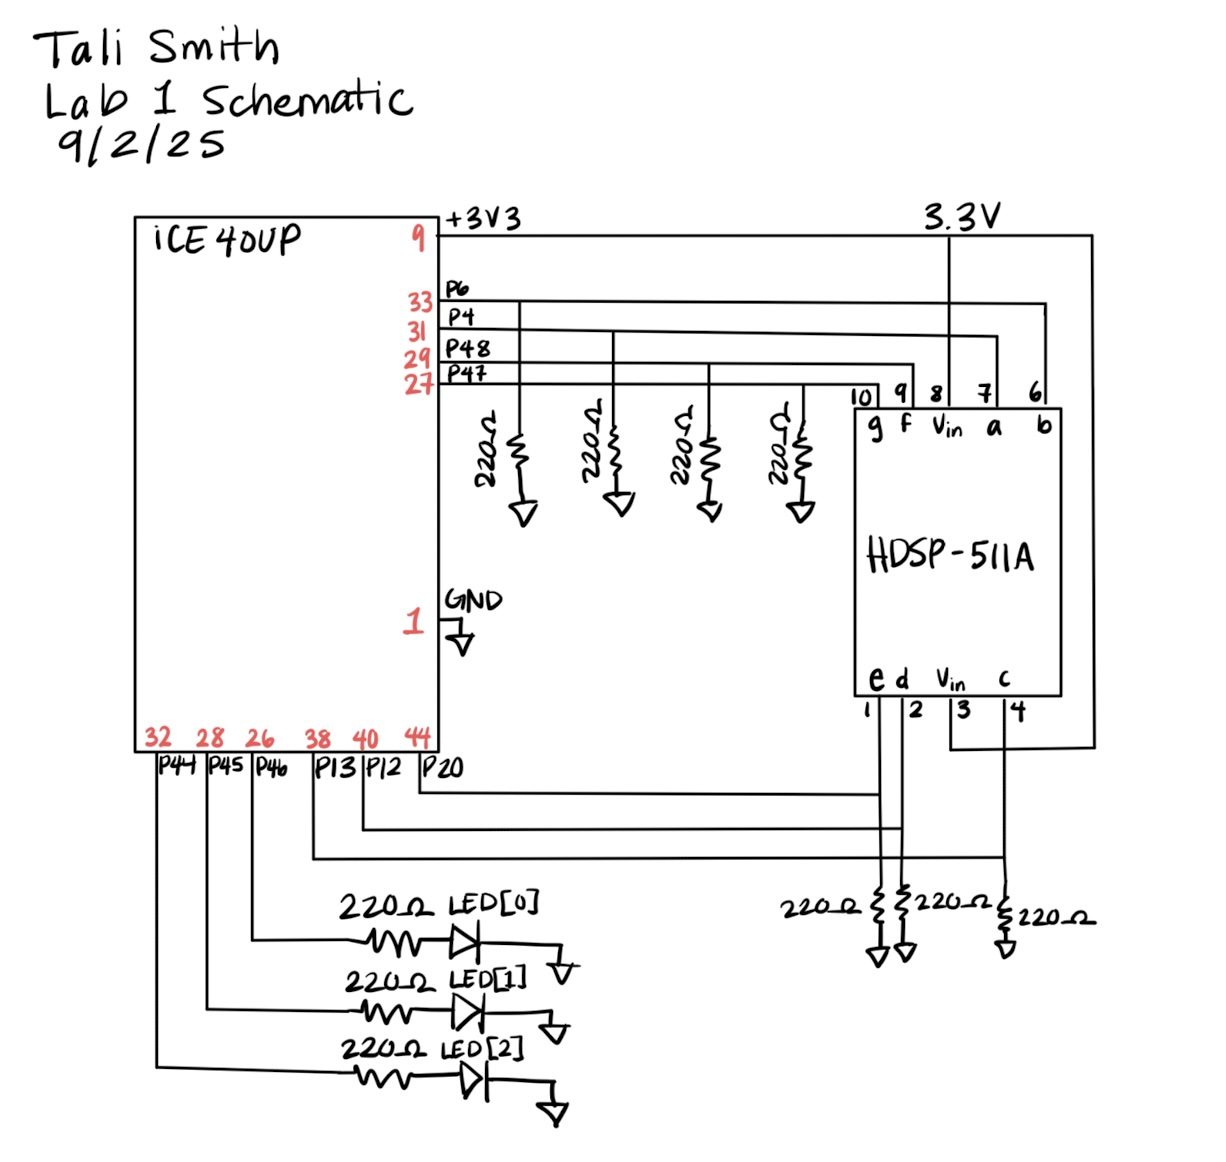 Tali Smith
Lab 1 Schematic
9/2/25
iCE40UP
9
+3V3
3.3V
33
P6
31
P4
29
P48
27
P47
220Ω
220Ω
220Ω
220Ω
10 9 8 7 6
g f Vin a b
HDSP-511A
1
GND
e d Vin c
1 2 3 4
32 28 26 38 40 44
P44 P45 P46 P13 P12 P20
220Ω LED[0]
220Ω LED[1]
220Ω LED[2]
220Ω 220Ω 220Ω